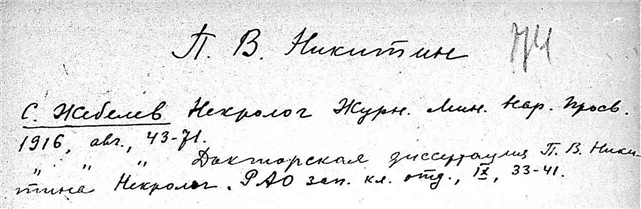 П. В. Никитин 74
С. Жебелев Некролог Журн. Мин. Нар. Просв.
1916, авг., 43-71.
" " " Докторская диссертация П. В. Ники-
тина Некролог. РАО зап. кл. отд., IX, 33-41.